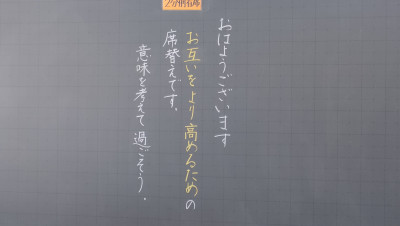 おはようございます
お互いをより高めるための
席替えです。
意味を考えて過ごそう。